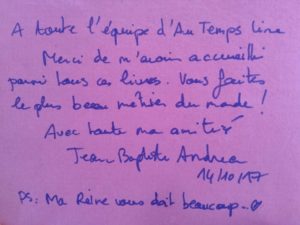 A toute l'équipe d'Au Temps Lire
Merci de m'avoir accueilli
parmi tous ces livres. Vous faites
le plus beau métier du monde !
Avec toute mon amitié
Jean-Baptiste Andrea
14/10/17
PS: Ma Reine vous doit beaucoup...